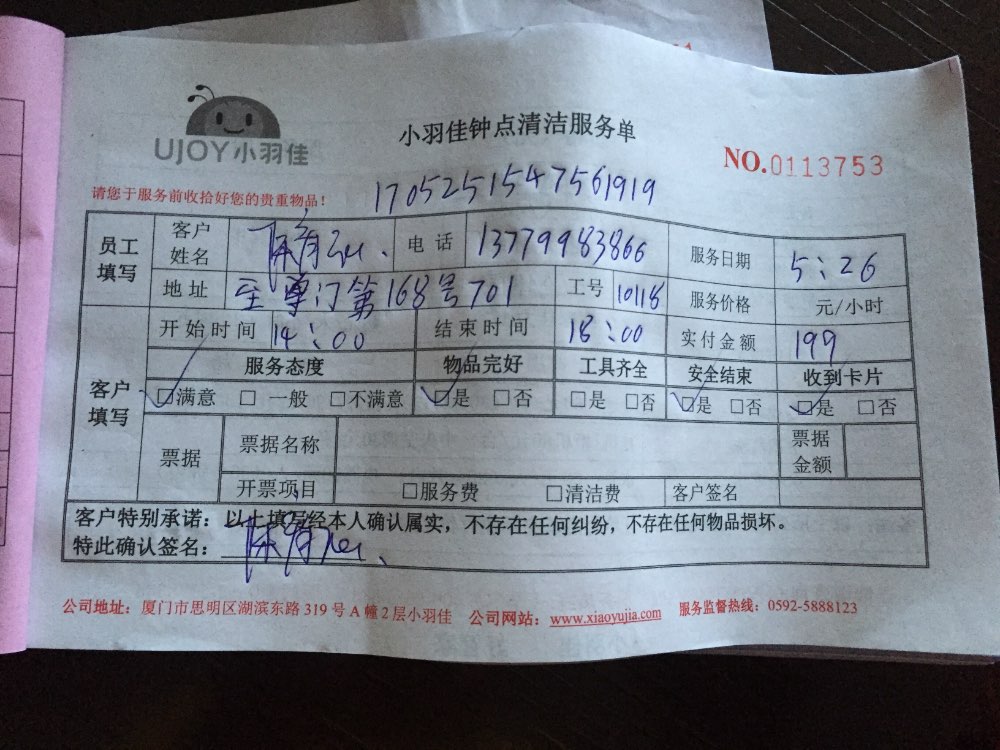 UJOY小羽佳
小羽佳钟点清洁服务单
NO.0113753
请您于服务前收拾好您的贵重物品！
1705251547561919
员工填写 客户姓名 陈 电话 13779983866 服务日期 5:26
地址 至尊门第168号701 工号 10118 服务价格 元/小时
开始时间 14:00 结束时间 18:00 实付金额 199
客户填写 服务态度 物品完好 工具齐全 安全结束 收到卡片
☑满意 □一般 □不满意 ☑是 □否 □是 □否 ☑是 □否 ☑是 □否
票据 票据名称 票据金额
开票项目 □服务费 □清洁费 客户签名
客户特别承诺：以上填写经本人确认属实，不存在任何纠纷，不存在任何物品损坏。
特此确认签名： 陈
公司地址：厦门市思明区湖滨东路319号A幢2层小羽佳 公司网站：www.xiaoyujia.com 服务监督热线：0592-5888123